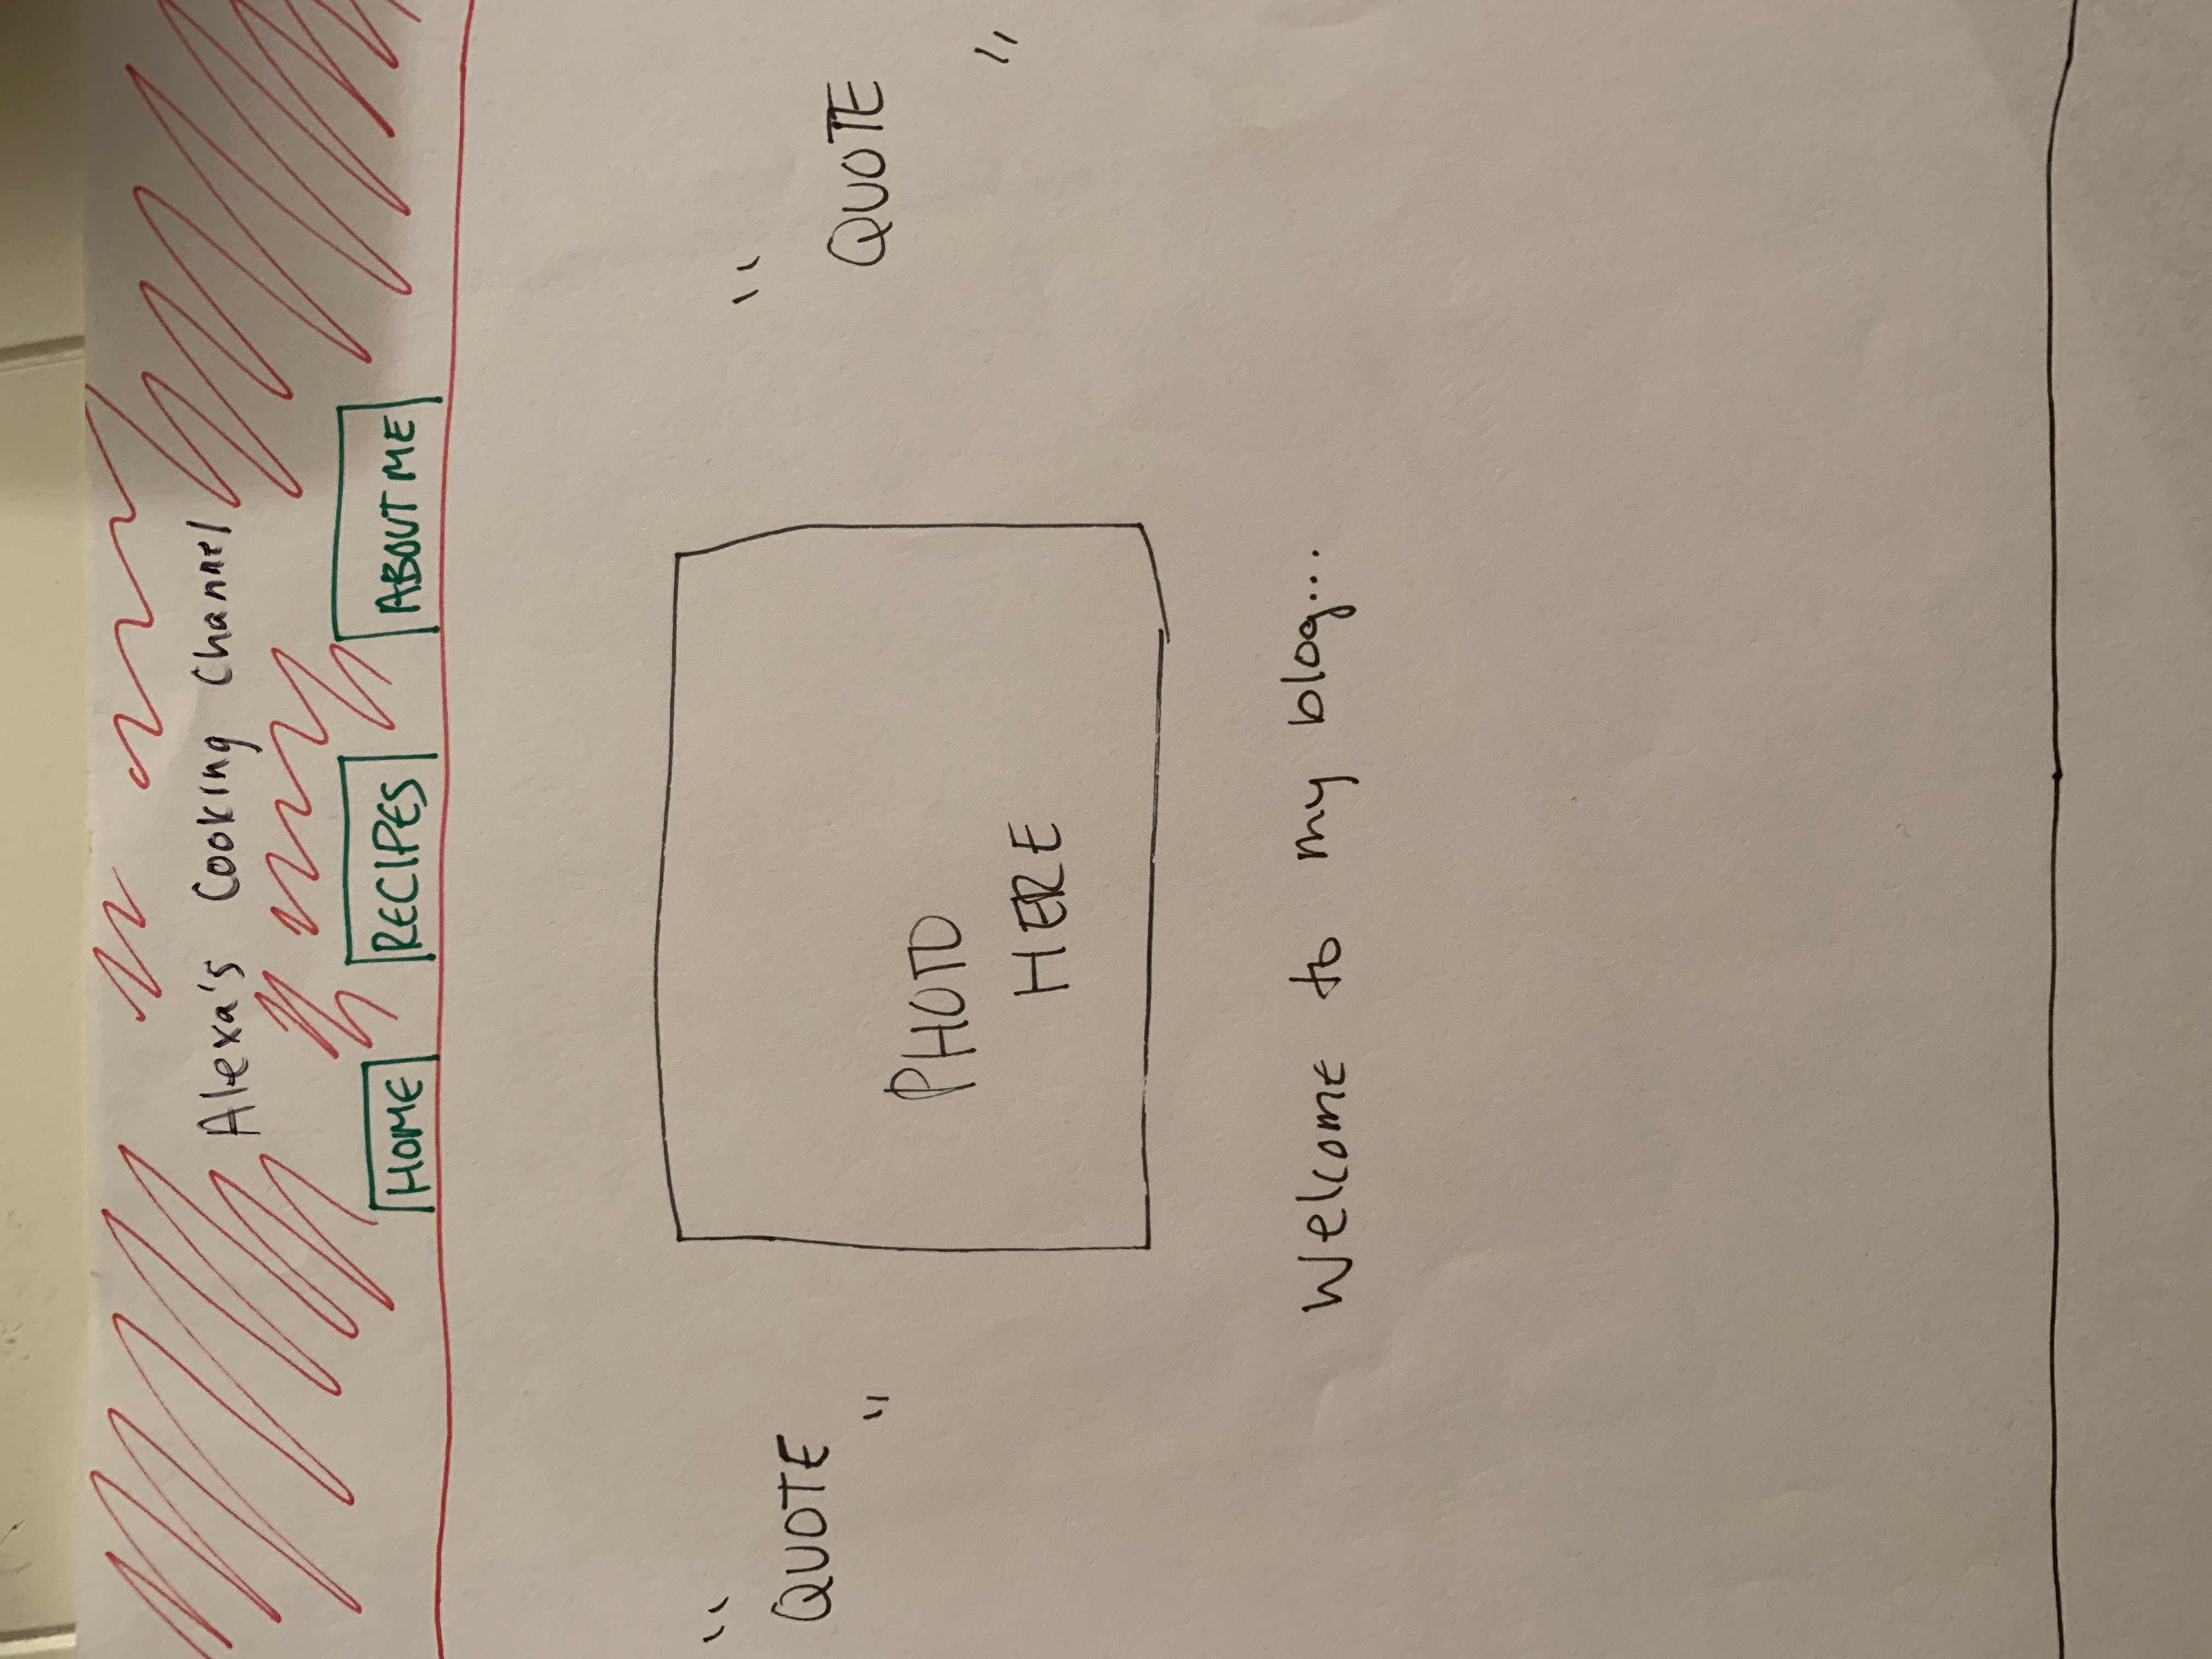 Alexa's Cooking Channel
HOME RECIPES ABOUT ME
"
QUOTE
"
PHOTO
HERE
"
QUOTE
"
Welcome to my blog...